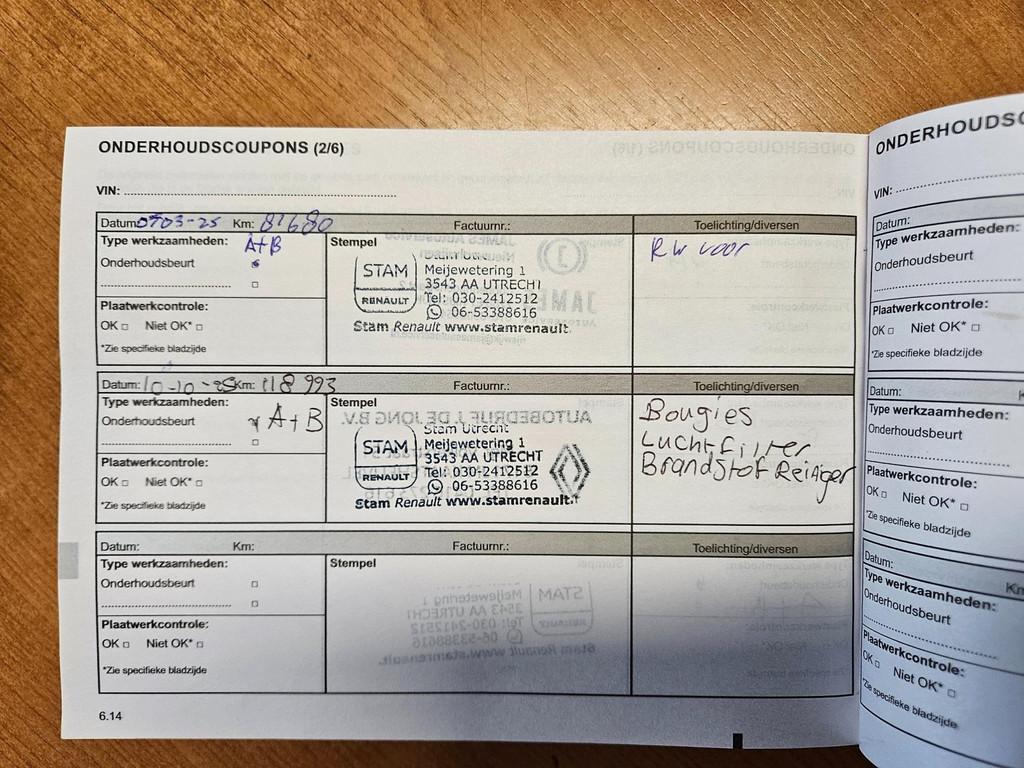 ONDERHOUDSCOUPONS (2/6)
VIN:
Datum: 0703-25 Km: 81680 Factuurnr.: Toelichting/diversen
Type werkzaamheden: A+B
Onderhoudsbeurt
Plaatwerkcontrole:
OK Niet OK*
*Zie specifieke bladzijde
Stempel
STAM
RENAULT
Meijewetering 1
3543 AA UTRECHT
Tel: 030-2412512
06-53388616
Stam Renault www.stamrenault.
RW voor
Datum: 10-10-25 Km: 118 993 Factuurnr.: Toelichting/diversen
Type werkzaamheden:
Onderhoudsbeurt A+B
Plaatwerkcontrole:
OK Niet OK*
*Zie specifieke bladzijde
Stempel
STAM
RENAULT
Stam Utrecht
Meijewetering 1
3543 AA UTRECHT
Tel: 030-2412512
06-53388616
Stam Renault www.stamrenault.
Bougies
Luchtfilter
Brandstof Reiniger
Datum: Km: Factuurnr.: Toelichting/diversen
Type werkzaamheden:
Onderhoudsbeurt
Plaatwerkcontrole:
OK Niet OK*
*Zie specifieke bladzijde
Stempel
6.14
ONDERHOUDSC
VIN:
Datum:
Type werkzaamheden:
Onderhoudsbeurt
Plaatwerkcontrole:
OK Niet OK*
*Zie specifieke bladzijde
Datum: K
Type werkzaamheden:
Onderhoudsbeurt
Plaatwerkcontrole:
OK Niet OK*
*Zie specifieke bladzijde
Datum: Km
Type werkzaamheden:
Onderhoudsbeurt
Plaatwerkcontrole:
OK Niet OK*
*Zie specifieke bladzijde